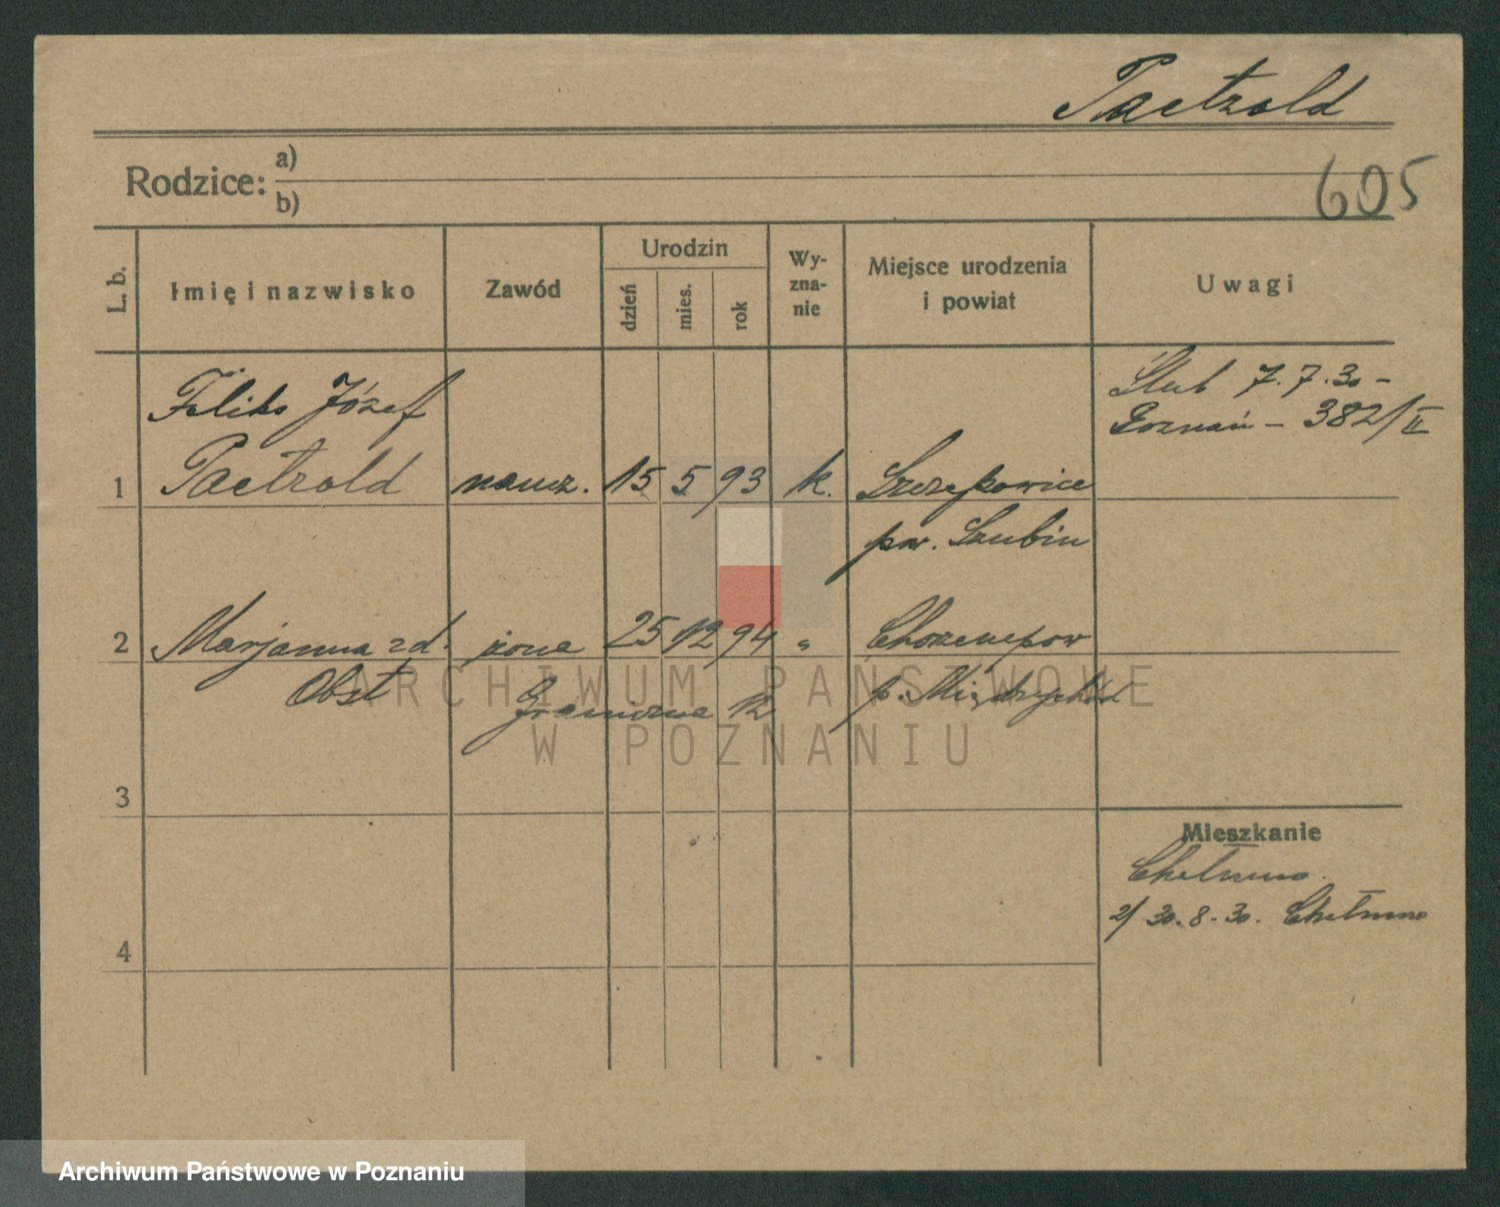 Paetzold
605
Rodzice: a)
b)
L. b. Imię i nazwisko Zawód Urodzin dzień mies. rok Wy-zna-nie Miejsce urodzenia i powiat Uwagi
Feliks Józef
Ślub 7.7.30 –
Poznań – 382/II
1 Paetzold naucz. 15 5 93 k. Szczepowice
pow. Szubin
2 Marjanna zd. żona 25 12 94 „
Obst Graniczna 12 p. Międzychód
ARCHIWUM PAŃSTWOWE
W POZNANIU
3
Mieszkanie
Chełmno.
2/ 30.8.30. Chełmno
4
Archiwum Państwowe w Poznaniu